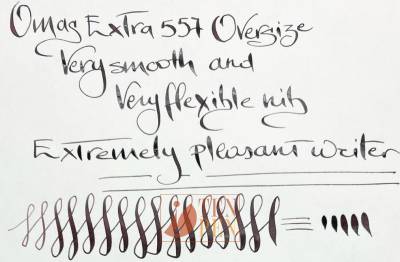 Omas Extra 557 Oversize
Very smooth and
Very flexible nib
Extremely pleasant writer